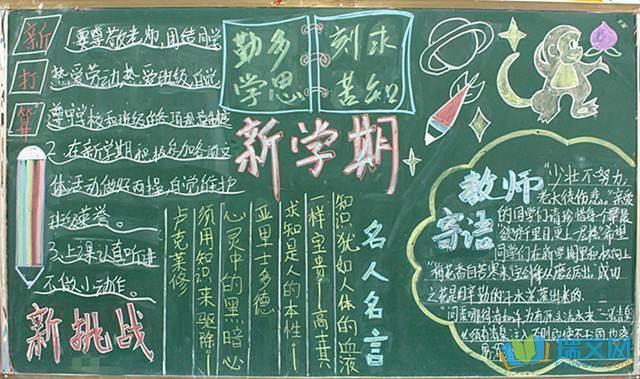 新打算
1要尊敬老师,团结同学
热爱劳动热爱班级自觉
遵守学校和班级的各项规章
2、在新学期积极参加各项
体活动做好两操,自觉维护
班级荣誉。
3、上课认真听讲
不做小动作。
新挑战
勤多
学思
刻求
苦知
新学期
名人名言
知识犹如人体的血液
一样宝贵—高士其
求知是人的本性—
亚里士多德
心灵中的黑暗心
须用知识来驱除!
卢克莱修
教师
寄语
"少壮不努力,
老大徒伤悲。"亲爱
的同学们请珍惜每
"欲穷千里目更上一层楼"希望
同学们在新学期里
"梅花香自苦寒来宝剑锋从磨砺出。成功
之花是用辛勤的汗水浇灌出来的.
瑞文网